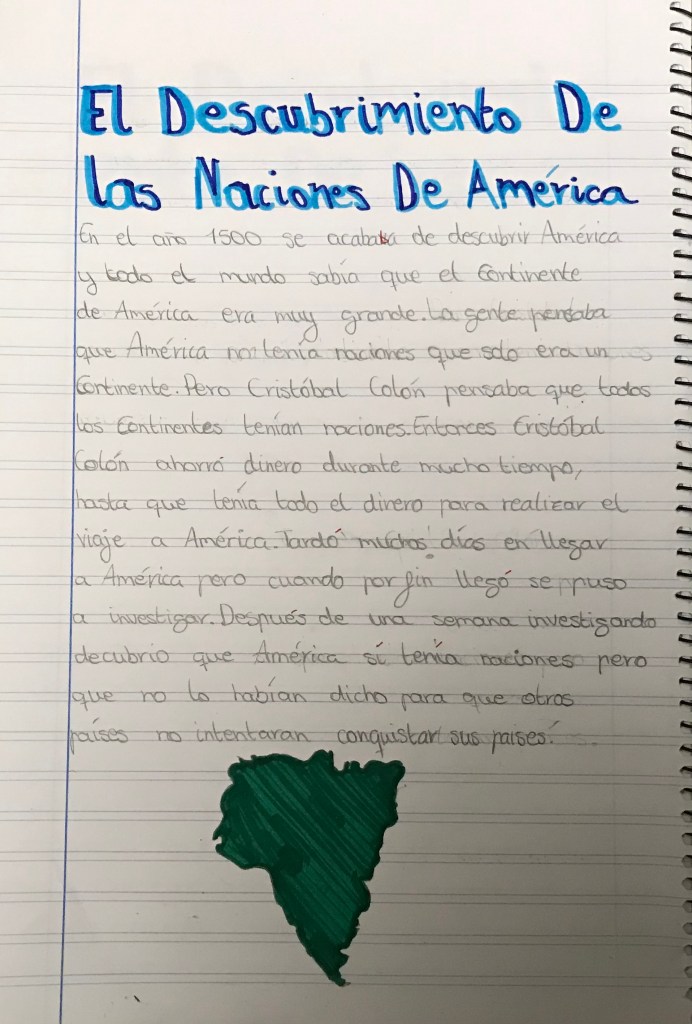 El Descubrimiento De
las Naciones De América
En el año 1500 se acababa de descubrir América
y todo el mundo sabía que el Continente
de América era muy grande. La gente pensaba
que América no tenía naciones que solo era un
Continente. Pero Cristóbal Colón pensaba que todos
los Continentes tenían naciones. Entonces Cristóbal
Colón ahorró dinero durante mucho tiempo,
hasta que tenía todo el dinero para realizar el
viaje a América. Tardó muchos días en llegar
a América pero cuando por fin llegó se puso
a investigar. Después de una semana investigando
decubrio que América sí tenía naciones pero
que no lo habían dicho para que otros
países no intentaran conquistar sus países.